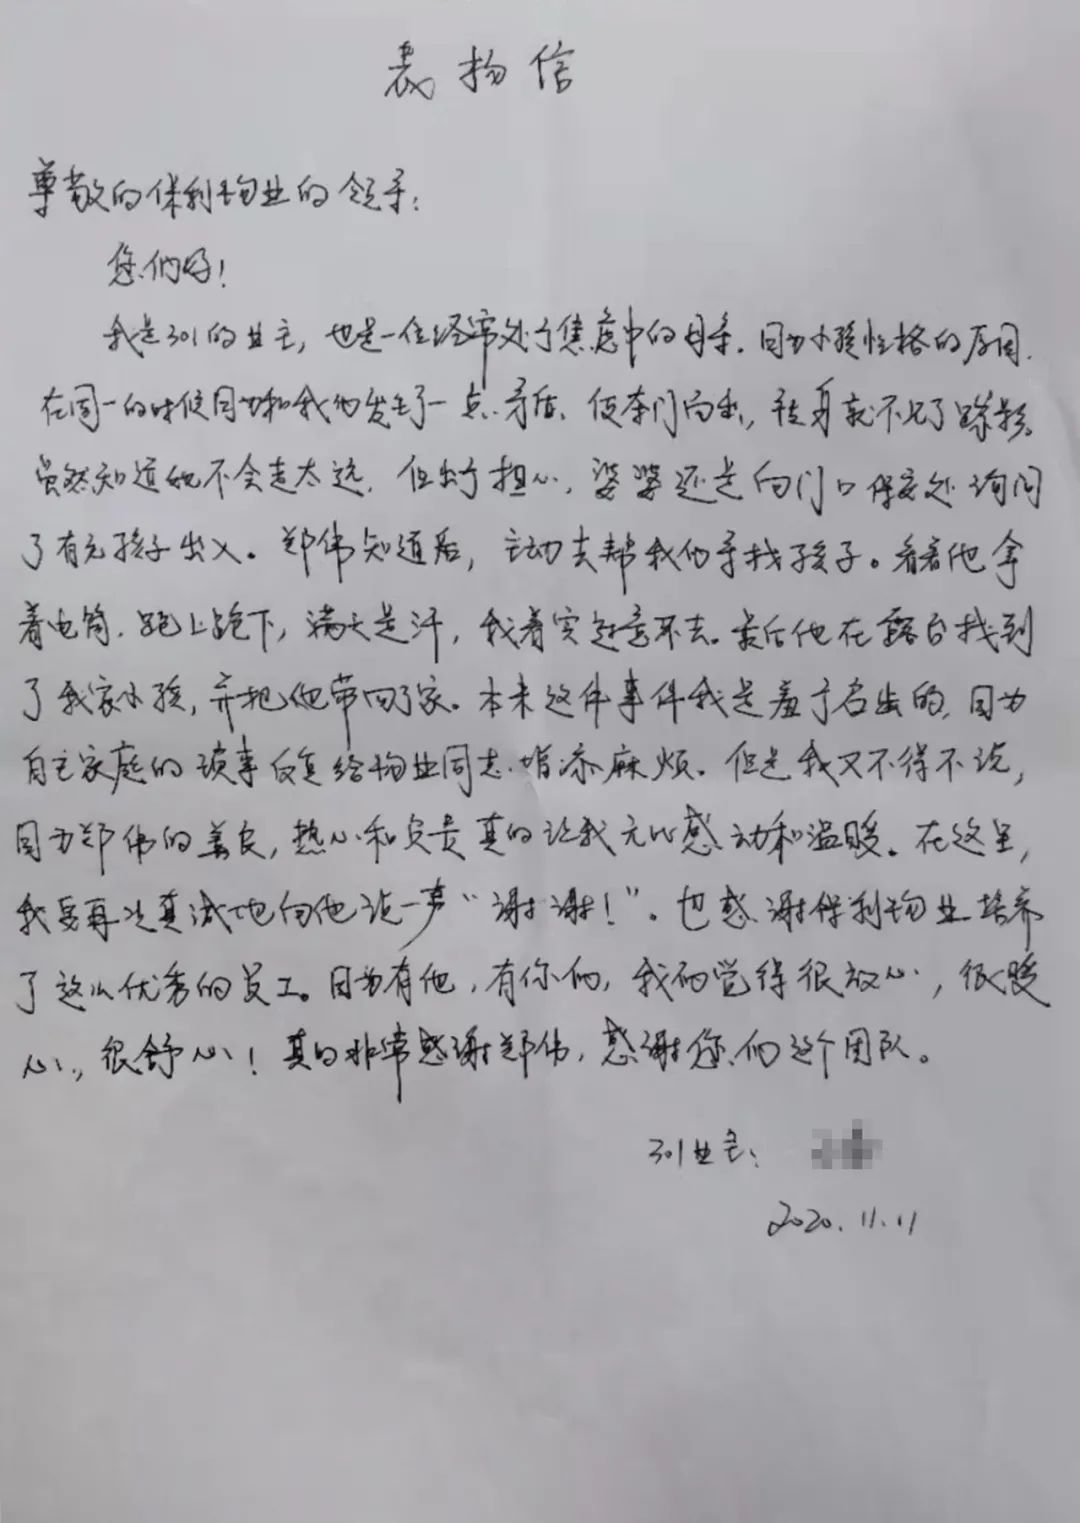 表扬信
尊敬的保利物业的领导：
您们好！
我是301的业主，也是一位经常处于焦虑中的母亲．因为小孩性格的原因．
在周一的时候因为和我们发生了一点矛盾．便夺门而出，转身就不见了踪影．
虽然知道她不会走太远．但出于担心，婆婆还是向门口保安处询问
了有无孩子出入。郑伟知道后，主动去帮我们寻找孩子。看着他拿
着电筒．跑上跑下，满头是汗，我着实过意不去．最后他在露台找到
了我家小孩，并把他带回了家。本来这件事件我是羞于启出的．因为
自己家庭的琐事反复给物业同志增添麻烦．但是我又不得不说，
因为郑伟的善良，热心和负责真的让我无比感动和温暖．在这里，
我要再次真诚地向他说一声“谢谢！”．也感谢保利物业培养
了这么优秀的员工。因为有他，有你们，我们觉得很放心，很暖
心，很舒心！真的非常感谢郑伟，感谢您们这个团队。
301业主：
2020.11.11